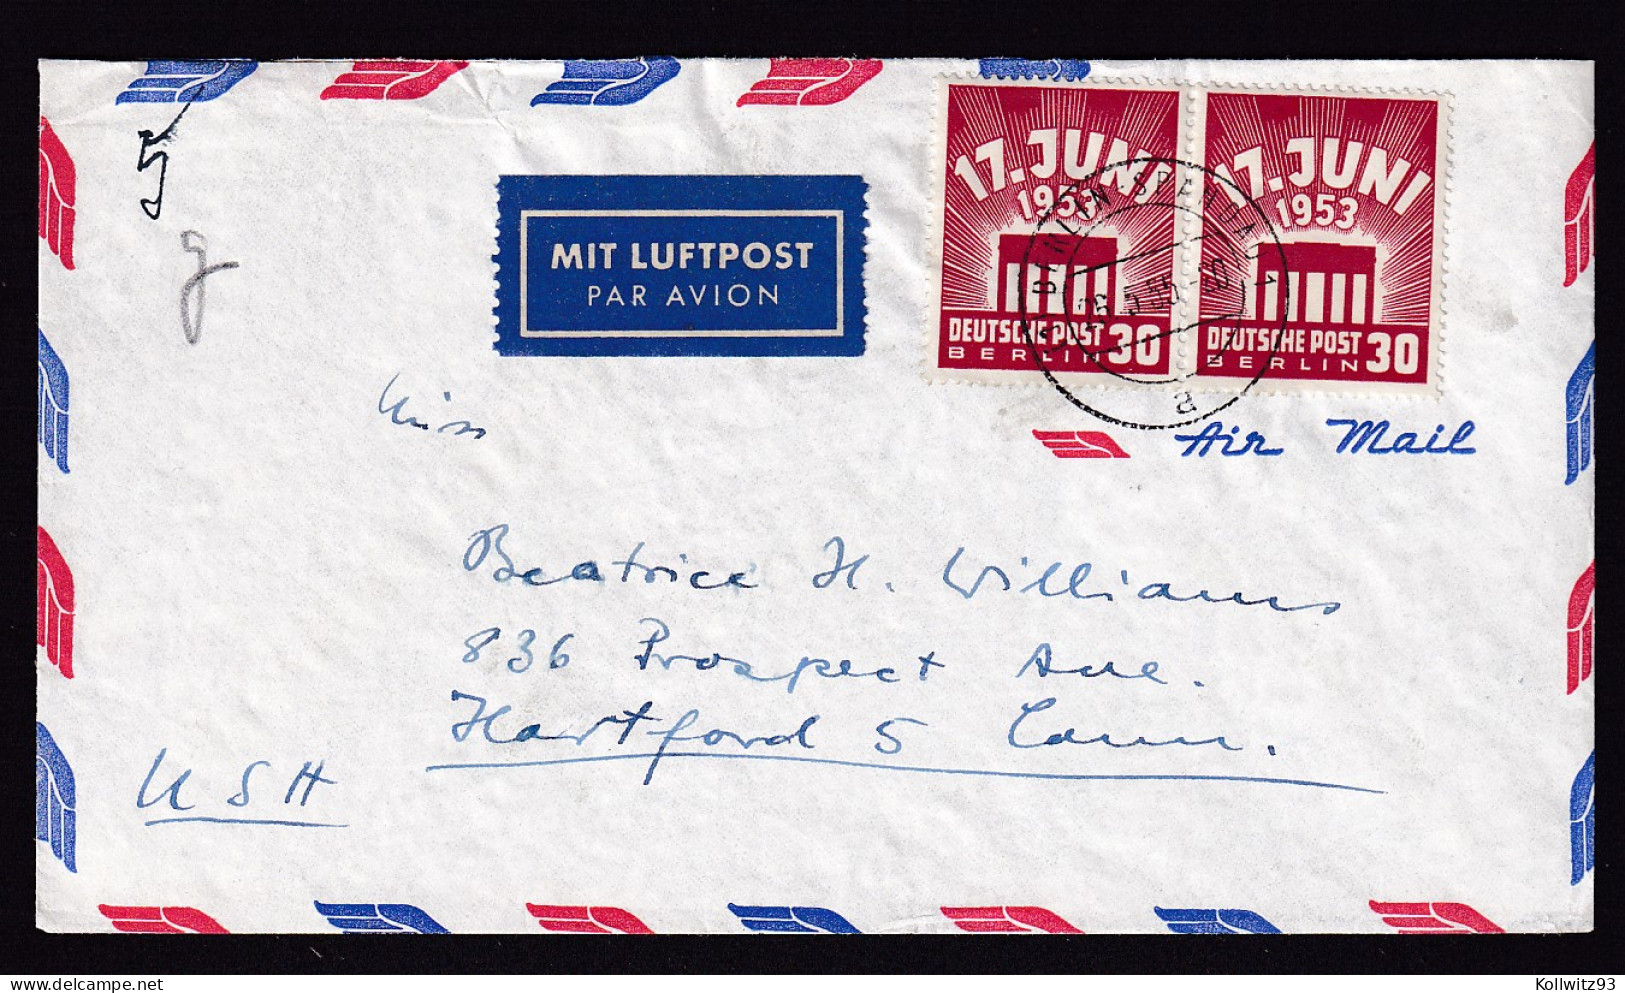 5
g
MIT LUFTPOST
PAR AVION
17. JUNI
1953
DEUTSCHE POST
BERLIN 30
17. JUNI
1953
DEUTSCHE POST
BERLIN 30
BERLIN-SPANDAU 1
26.5.55
a
Air Mail
Miss
Beatrice H. Williams
836 Prospect Ave.
Hartford 5 Conn.
USA
Kollwitz93